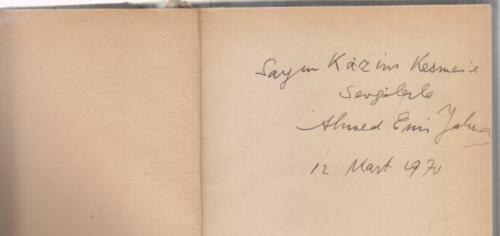 Sayın Kâzım Kesmen'e
Sevgilerle
Ahmed Emin Yalman
12 Mart 1970